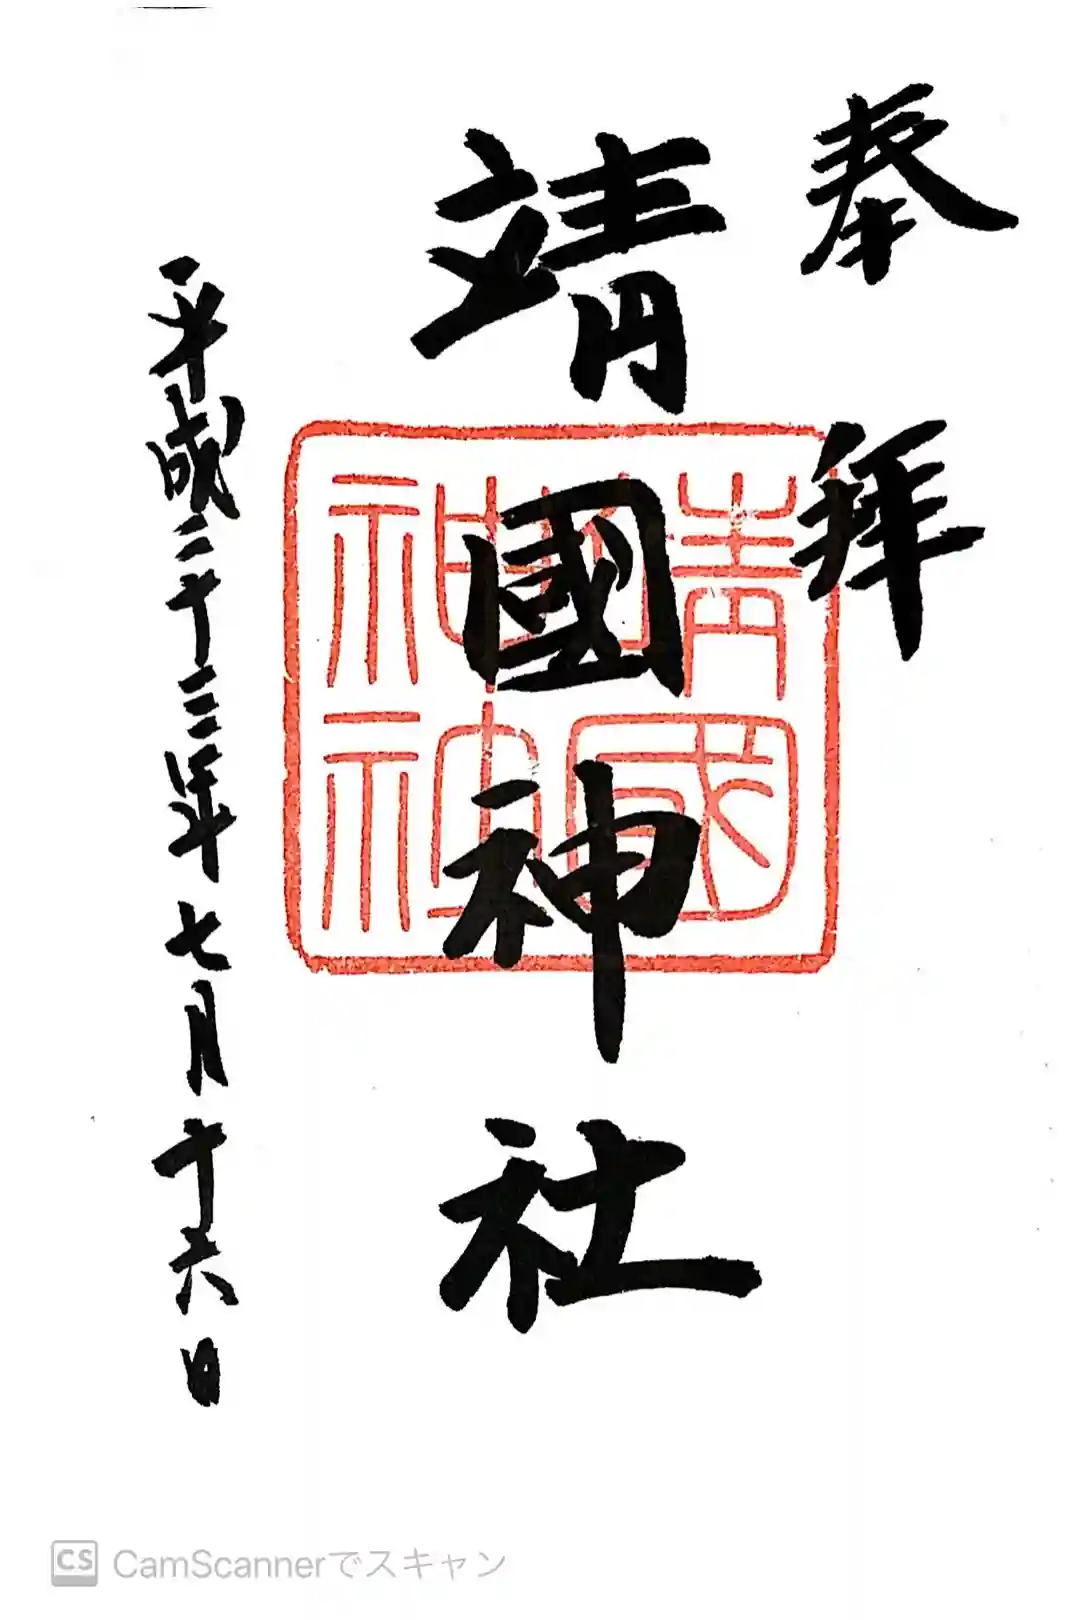 奉拜
靖國神社
靖國神社
平成二十三年七月十六日
CS CamScannerでスキャン